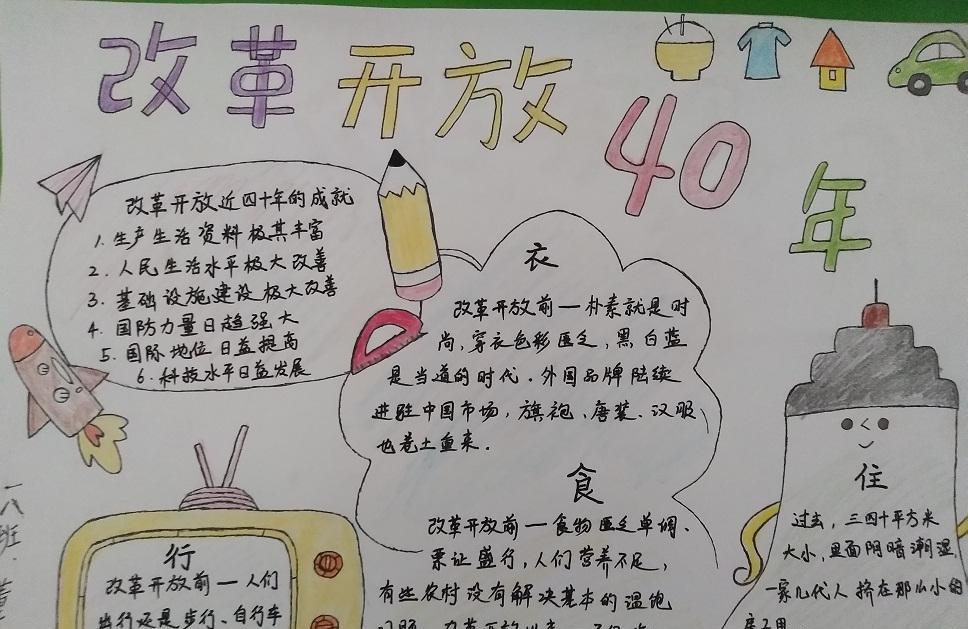 改革开放
40
年
改革开放近四十年的成就
1. 生产生活资料极其丰富
2. 人民生活水平极大改善
3. 基础设施建设极大改善
4. 国防力量日趋强大
5. 国际地位日益提高
6. 科技水平日益发展
衣
改革开放前一朴素就是时
尚,穿衣色彩匮乏,黑白蓝
是当道的时代.外国品牌陆续
进驻中国市场,旗袍、唐装、汉服
也卷土重来.
食
改革开放前一食物匮乏单调、
票证盛行,人们营养不足,
有些农村没有解决基本的温饱
住
过去,三四十平方米
大小,里面阴暗潮湿,
一家几代人挤在那么小的
房子里
行
改革开放前一人们
出行还是步行、自行车
一八班